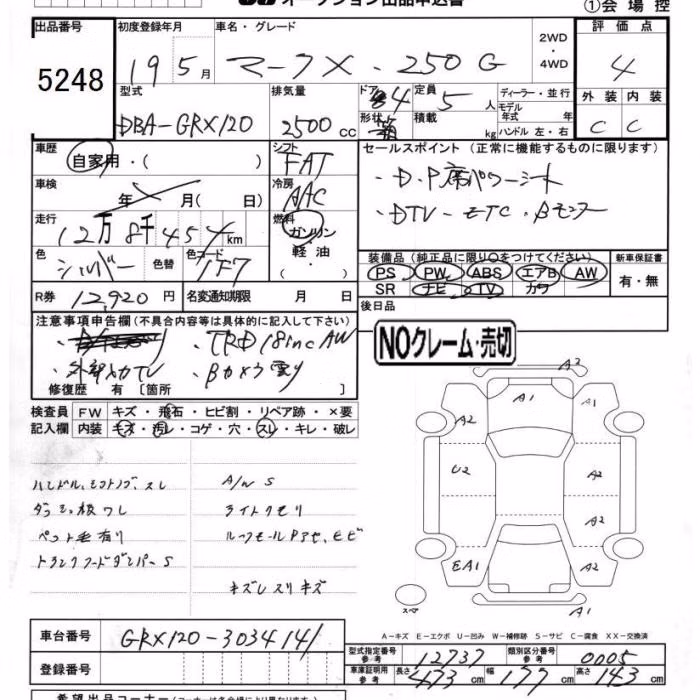 オークション出品申込書
①会場控
出品番号
5248
初度登録年月
19 5月
車名・グレード
マークX・250G
2WD・4WD
評価点
4
外装 内装
C C
型式
DBA-GRX120
排気量
2500cc
ドア 4
形状 箱
定員 5人
積載 kg
ディーラー・並行
モデル年式 年
ハンドル 左・右
車歴
自家用・( )
シフト
FAT
セールスポイント (正常に機能するものに限ります)
・D.P席パワーシート
・DTV・ETC・Bモニター
車検
年 月( 日)
冷房
AAC
走行
12万8千454km
燃料
ガソリン
軽油
・
色
シルバー
色替
色コード
1F7
装備品 (純正品に限り○をつけてください)
PS PW ABS エアB AW
SR ナビ TV カワ
新車保証書
有・無
R券 12,920円
名変通知期限 月 日
後日品
注意事項申告欄(不具合内容等は具体的に記入して下さい)
・TRD18incAW
・外部入力TV ・Bカメラ曇り
修復歴 有 [箇所
NOクレーム・売切
検査員記入欄
FW キズ・飛石・ヒビ割・リペア跡・×要
内装 キズ・汚レ・コゲ・穴・スレ・キレ・破レ
ハンドル、シフトノブ、スレ
ダッシュ板ワレ
ペット毛有り
トランクフードダンパーS
A/W S
ライトクモリ
ルーフモールPアセ、ヒビ
キズレスリキズ
A3
A1
A1
A2
U2
A2
A2
EA1
A2
スペア
A1
A－キズ E－エクボ U－凹み W－補修跡 S－サビ C－腐食 XX－交換済
車台番号
GRX120-3034141
登録番号
型式指定番号 参考 12737
類別区分番号 参考 0005
車庫証明用 参考 長さ 473cm 幅 177cm 高さ 143cm
希望出品コーナー